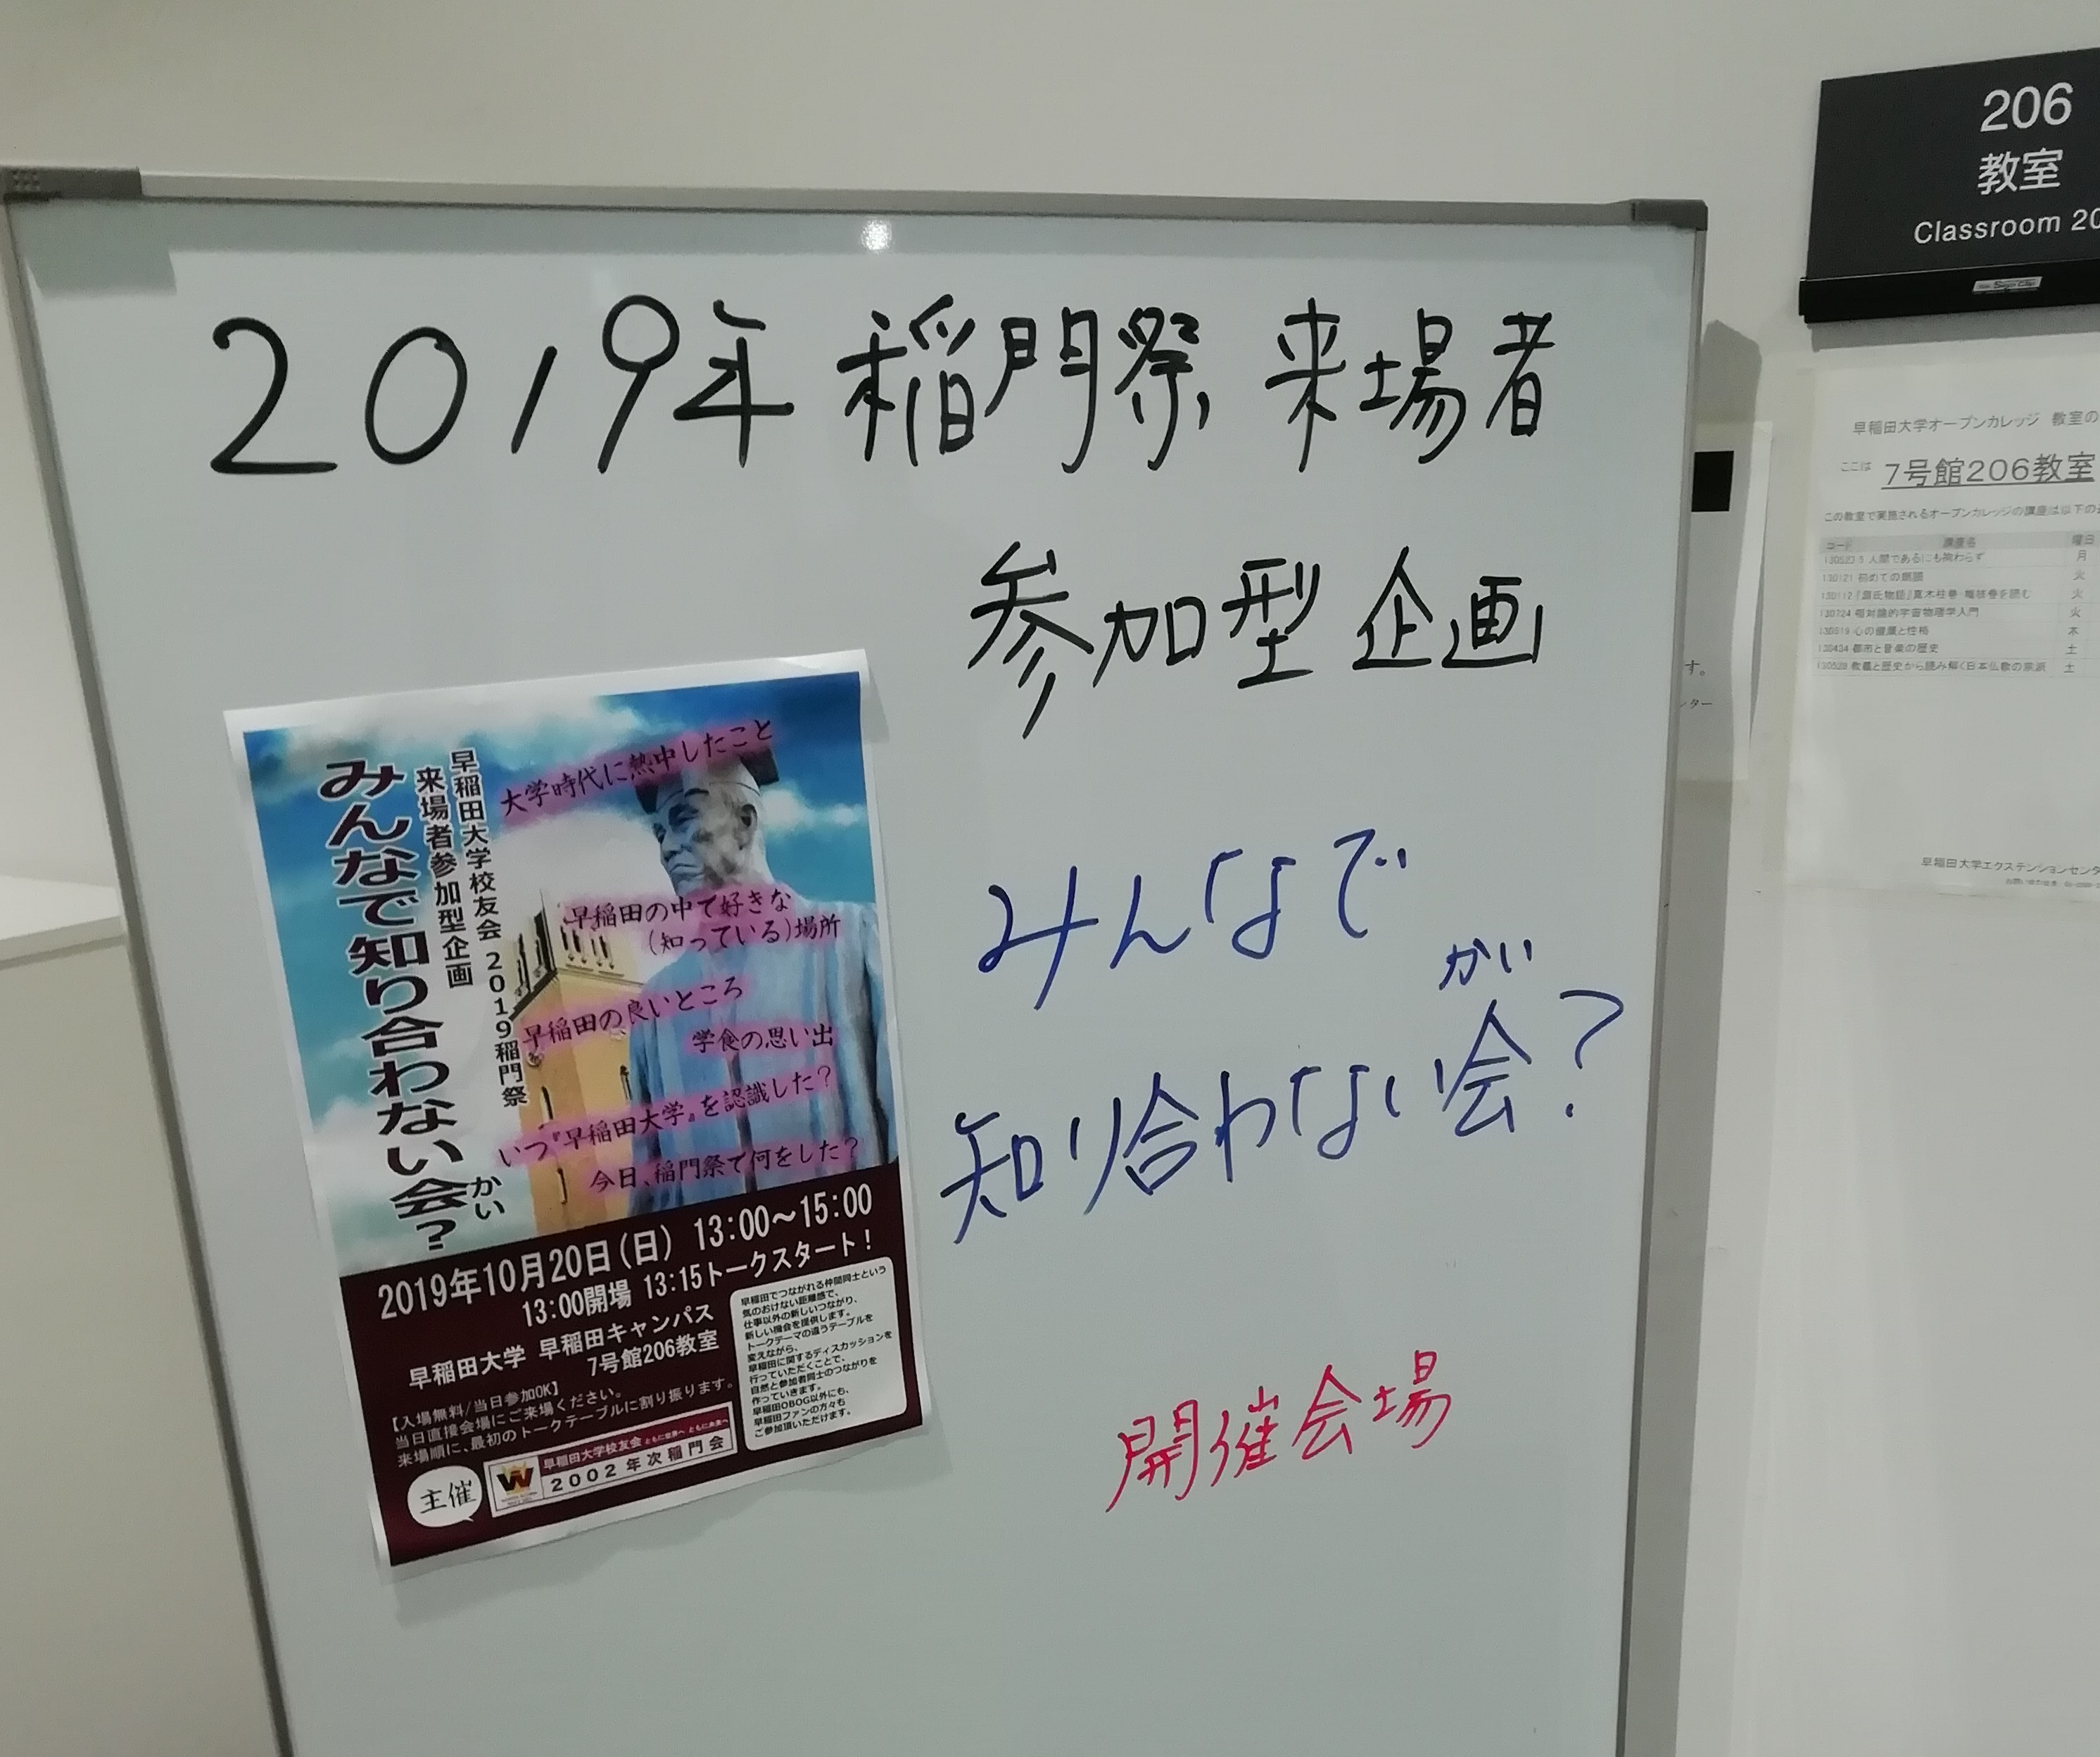 2019年 稲門祭 来場者
参加型 企画
みんなで
かい
知り合わない会?
開催会場
早稲田大学校友会 2019稲門祭
来場者参加型企画
みんなで知り合わない会?
かい
大学時代に熱中したこと
早稲田の中で好きな
(知っている)場所
早稲田の良いところ
学食の思い出
いつ『早稲田大学』を認識した?
今日、稲門祭で何をした?
2019年10月20日(日) 13:00~15:00
13:00開場 13:15トークスタート!
早稲田大学 早稲田キャンパス
7号館206教室
【入場無料/当日参加OK】
当日直接会場にご来場ください。
来場順に、最初のトークテーブルに割り振ります。
早稲田でつながれる仲間同士という
気のおけない距離感で、
仕事以外の新しいつながり、
新しい機会を提供します。
トークテーマの違うテーブルを
変えながら、
早稲田に関するディスカッションを
行っていただくことで、
自然と参加者同士のつながりを
作っていきます。
早稲田OBOG以外にも、
早稲田ファンの方々も
ご参加頂いただけます。
主催
W
早稲田大学校友会
2002年次稲門会
206
教室
Classroom 20
早稲田大学オープンカレッジ 教室の
ここは
7号館206教室
この教室で実施されるオープンカレッジの講座は以下の
コード 講座名 曜日
人間であるにも拘わらず 月
初めての朗読 火
『源氏物語』真木柱巻・梅枝巻を読む 火
相対論的宇宙物理学入門 火
心の健康と性格 木
都市と音楽の歴史 土
教義と歴史から読み解く日本仏教の宗派 土
早稲田大学エクステンションセンタ
す。
ンター